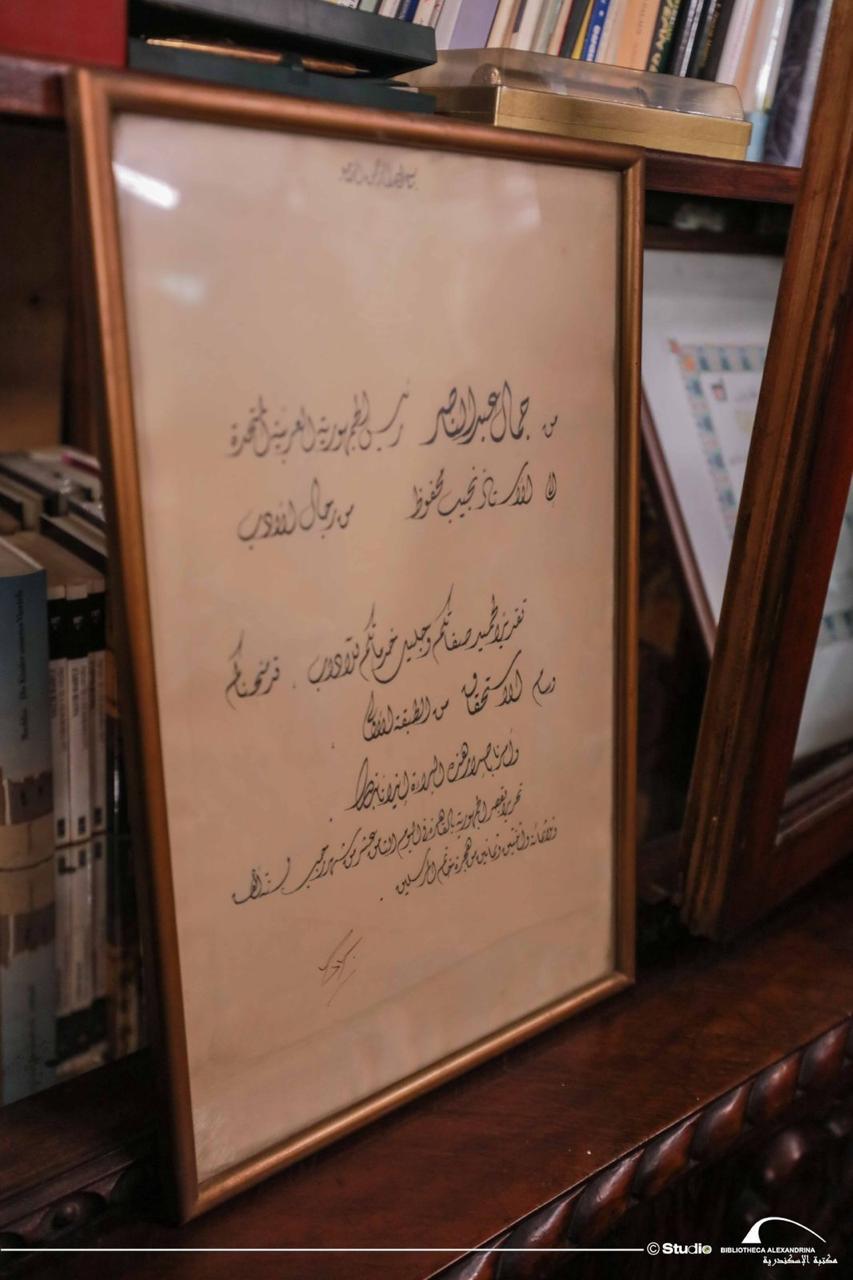 بسم الله الرحمن الرحيم
من جمال عبد الناصر رئيس الجمهورية العربية المتحدة
إلى الأستاذ نجيب محفوظ من رجال الأدب
تقديراً لحميد صفاتكم وجليل خدماتكم للآداب . قد منحناكم
وسام الاستحقاق من الطبقة الأولى .
وأمرنا بإصدار هذه البراءة إيذاناً بذلك .
تحريراً بقصر الجمهورية بالقاهرة في اليوم الثامن عشر من شهر رجب لسنة ألف
وثلاثمائة واثنتين وثمانين من هجرة خاتم المرسلين .
© Studio
BIBLIOTHECA ALEXANDRINA
مكتبة الإسكندرية